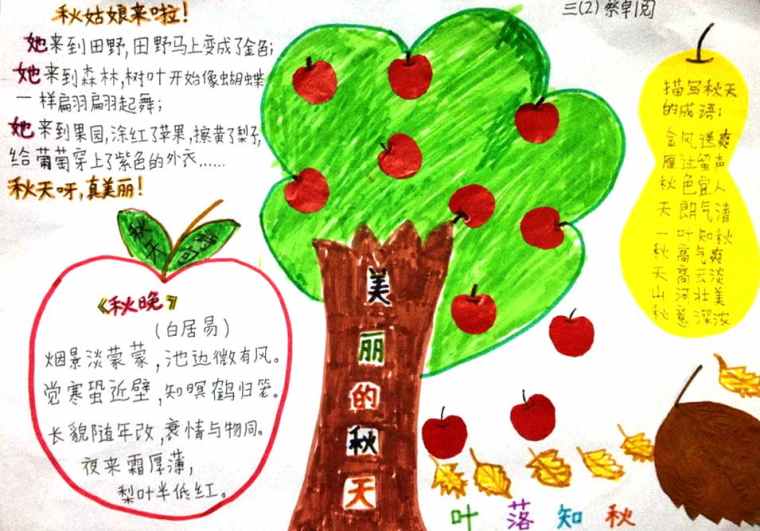 三(2)
秋姑娘来啦!
她来到田野,田野马上变成了金色;
她来到森林,树叶开始像蝴蝶
一样翩翩起舞;
她来到果园,涂红了苹果,擦黄了梨子,
给葡萄穿上了紫色的外衣……
秋天呀,真美丽!
秋天
《秋晚》
(白居易)
烟景淡蒙蒙,池边微有风。
觉寒蛩近壁,知暝鹤归笼。
长貌随年改,衰情与物同。
夜来霜厚薄,
梨叶半低红。
美丽的秋天
描写秋天
的成语:
金风送爽
雁过留声
秋色宜人
天朗气清
一叶知秋
秋高气爽
天高云淡
山河壮美
秋意深浓
叶落知秋